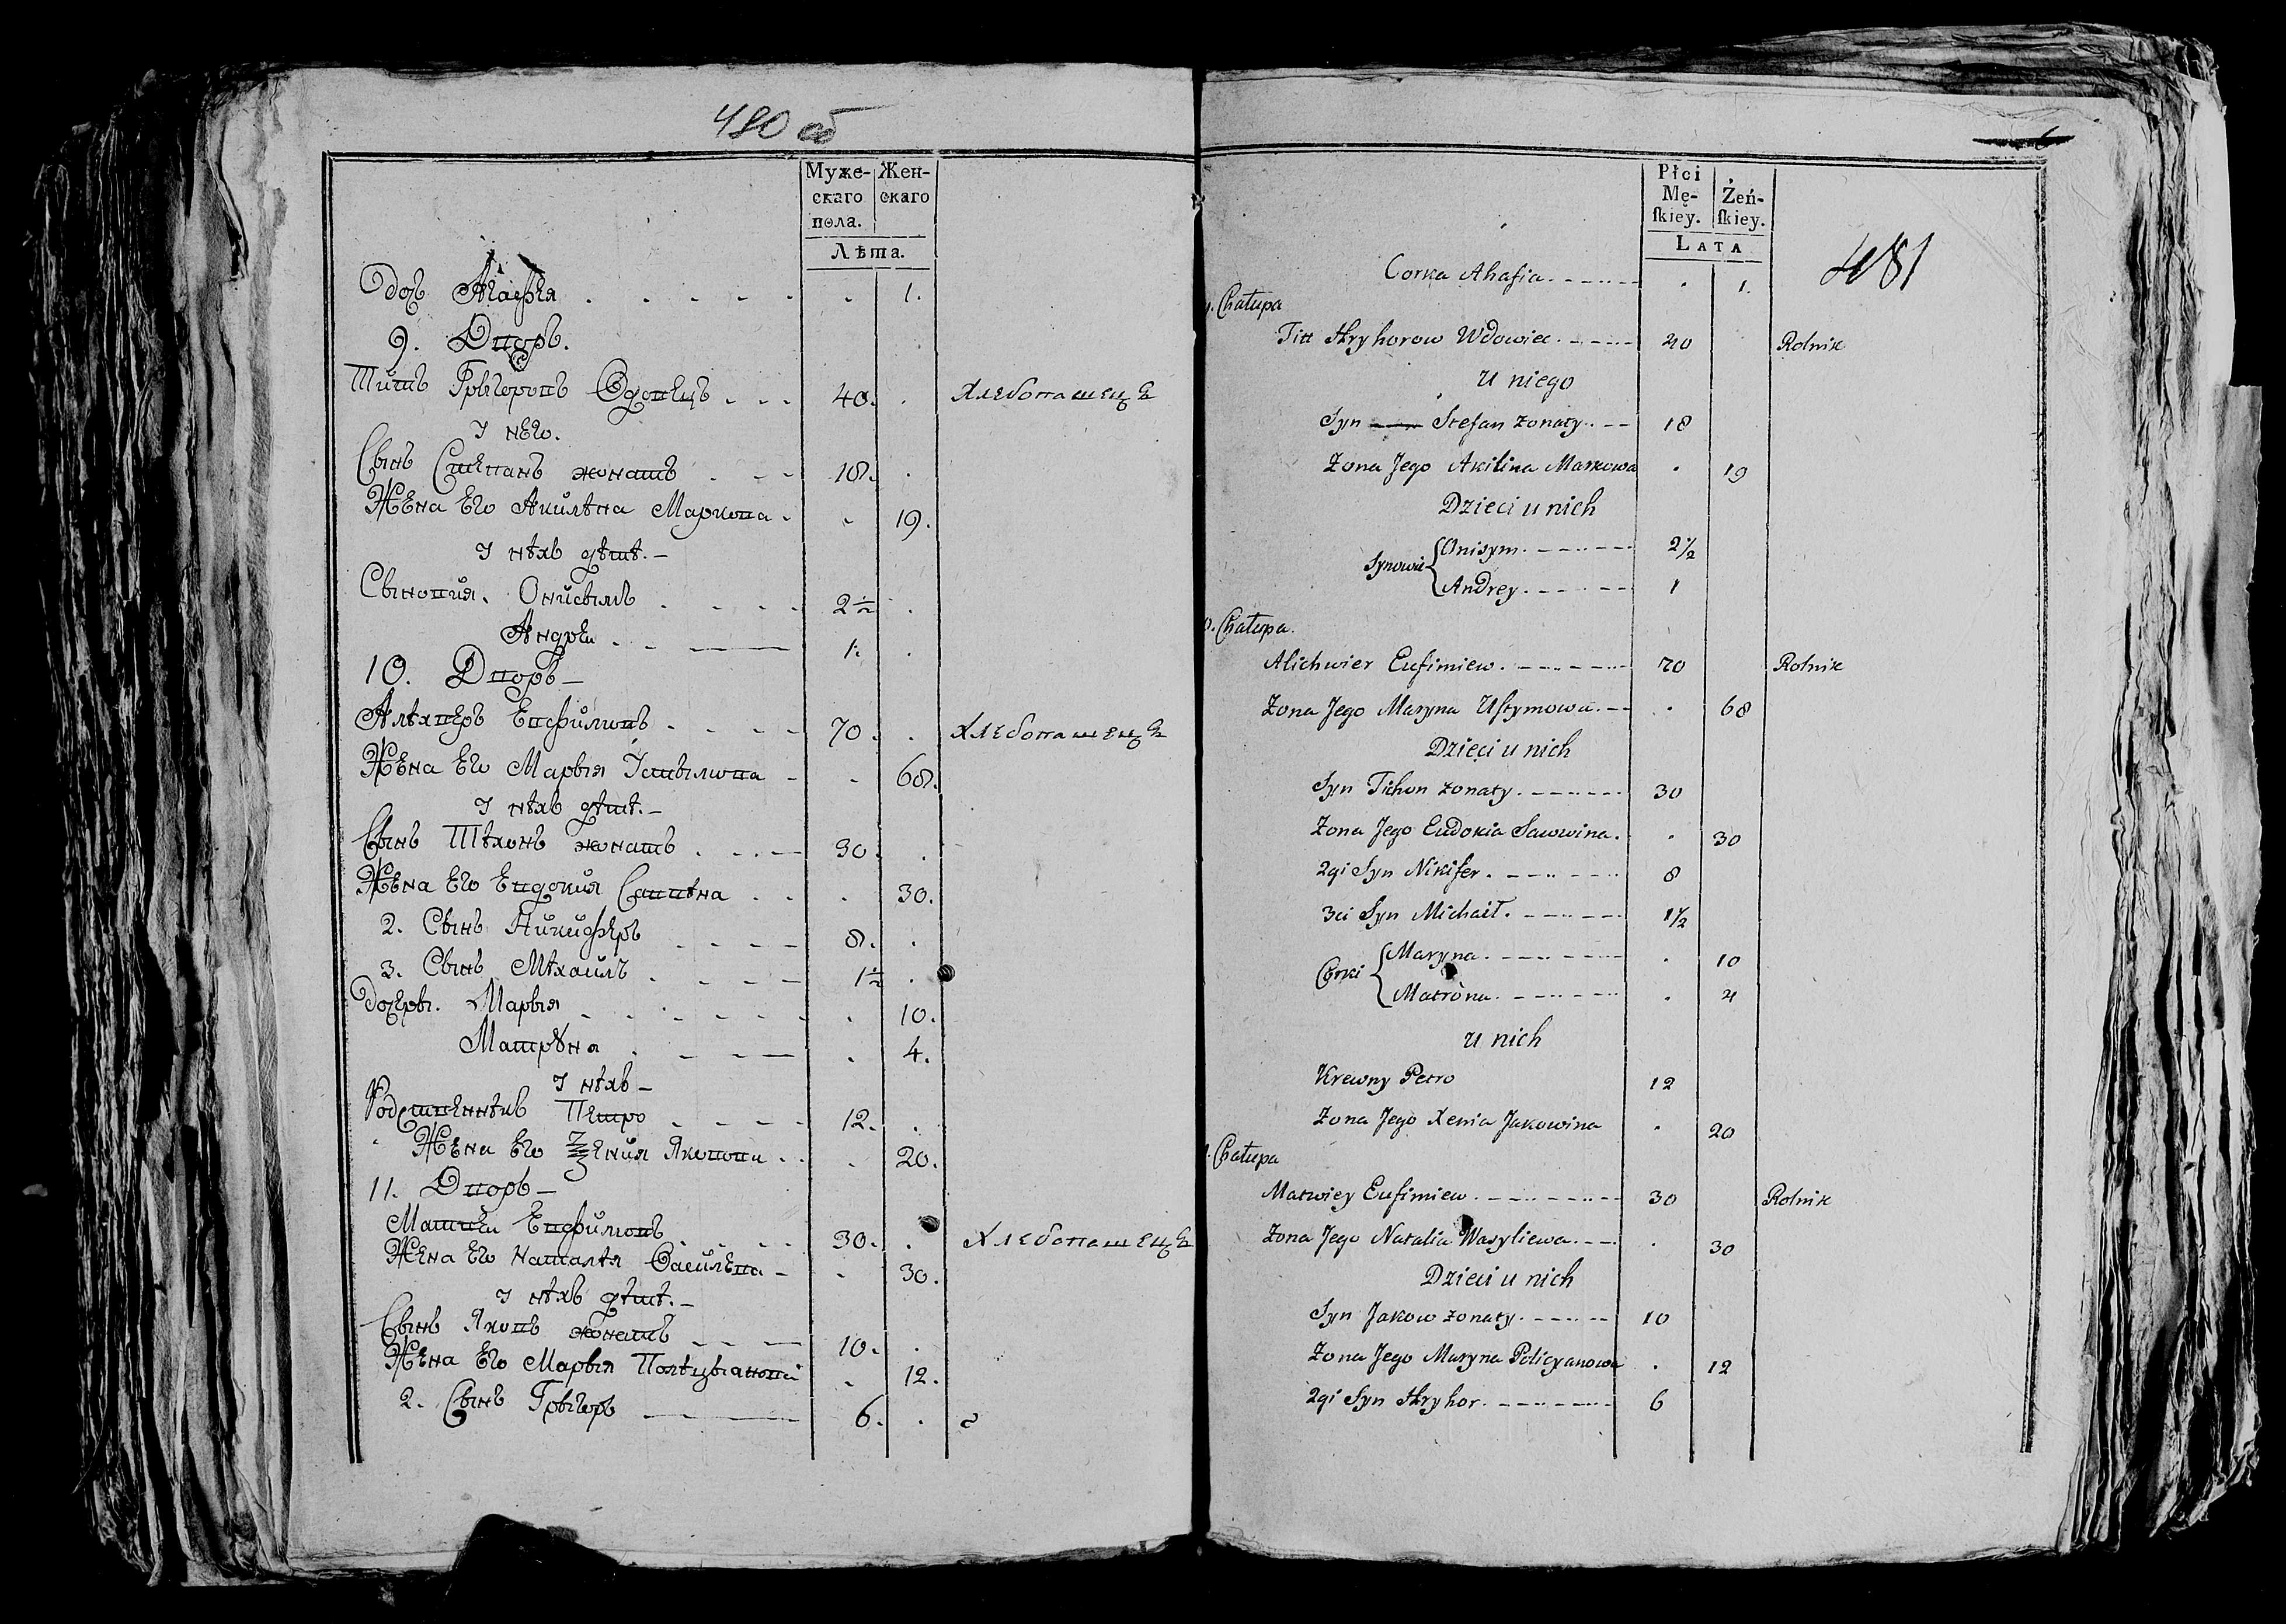 480 об
Муже-
скаго
пола.
Жен-
скаго
Лѣта.
Дочь Агафия 1.
9. Дворъ.
Титъ Грыгоровъ Вдовецъ 40. Хлебопашецъ
У него.
Сынъ Степанъ жонатъ 18.
Жена Его Акилѣна Маркова 19.
У нѣхъ дѣти.
Сыновия. Онисымъ 2½
Андрей 1.
10. Дворъ
Алѣхверъ Евфимовъ 70. Хлебопашецъ
Жена Его Марыя Устымова 68.
У нѣхъ дѣти.
Сынъ Тѣхонъ жонатъ 30.
Жена Его Евдокия Саввѣна 30.
2. Сынъ Никифєръ 8.
3. Сынъ Мѣхаилъ 1½
Дочеры. Марыя 10.
Матрона 4.
У нѣхъ
Родственнѣкъ Петро 12.
Жена Его Ѯения Яковова 20.
11. Дворъ
Матвей Евфимовъ 30. Хлебопашецъ
Жена Его Наталѣя Васильева 30.
У нѣхъ дѣти.
Сынъ Яковъ жонатъ 10.
Жена Его Марыя Полѣцыанова 12.
2. Сынъ Грыгоръ 6.
Płci
Mę-
skiey.
Żeń-
skiey.
LATA
481
Corka Ahafia 1.
Chałupa
Titt Hryhorow Wdowiec 40 Rolnik
u niego
Syn Stefan żonaty 18
Żona Jego Akilina Markowa 19
Dzieci u nich
Synowie Onisym 2½
Andrey 1
Chałupa.
Alichwier Eufimiew 70 Rolnik
Żona Jego Maryna Ustymowa 68
Dzieci u nich
Syn Tichon żonaty 30
Żona Jego Eudokia Sawwina 30
2gi Syn Nikifer 8
3ci Syn Michaił 1½
Corki Maryna 10
Matrona 4
u nich
Krewny Petro 12
Żona Jego Xenia Jakowina 20
Chałupa
Matwiey Eufimiew 30 Rolnik
Żona Jego Natalia Wasyliewa 30
Dzieci u nich
Syn Jakow żonaty 10
Żona Jego Maryna Policyanowa 12
2gi Syn Hryhor 6